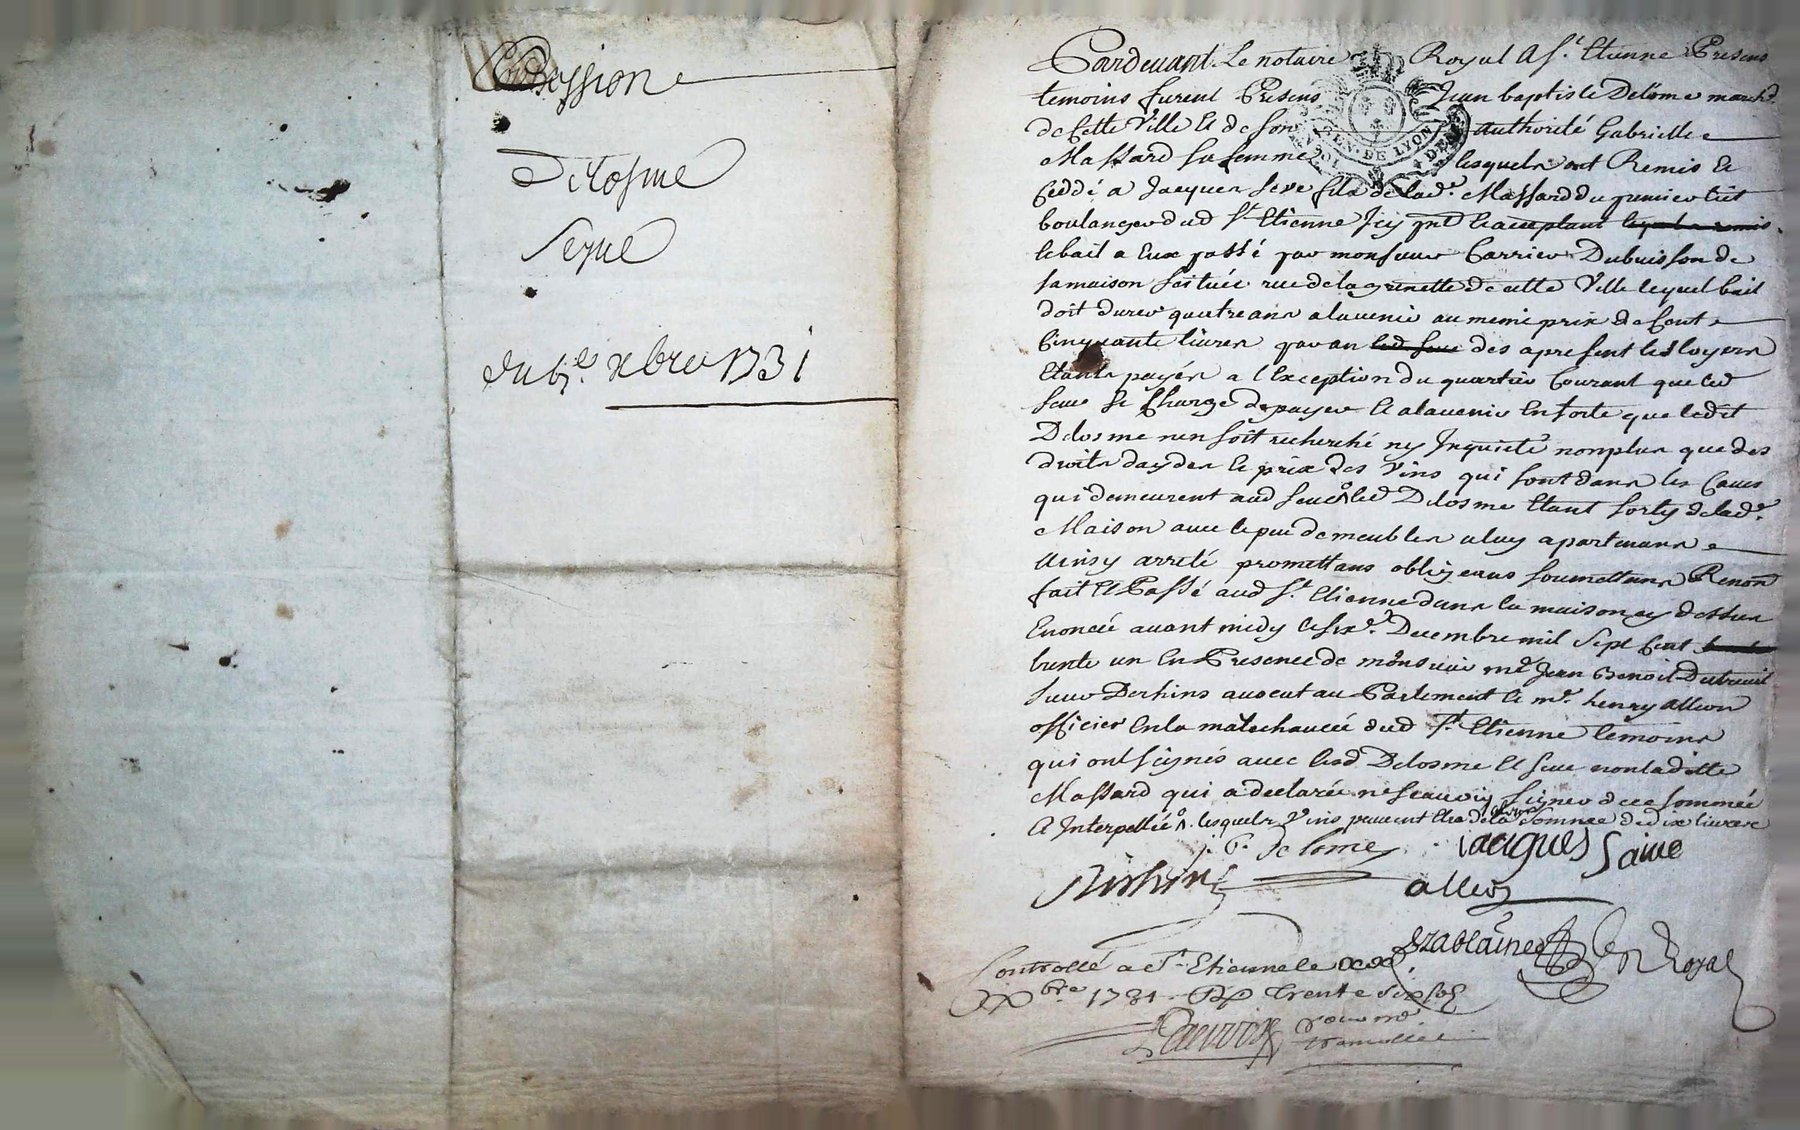 Cession
Delosme
Seyve
du 6e. xbre 1731
Pardevant Le notaire Royal A St. Etienne Presens
temoins furent Presens Jean baptiste Delôme march.d
de Cette Ville Et de son authorité Gabrielle
Massard sa femme lesquels ont Remis Et
Ceddé a Jacques seve fils de lad.e Massard du premier lict
boulanger dud St Etienne Icy pnt Et acceptant
le bail a Eux passé par monsieur Carrier Dubuisson de
sa maison scituée rue de la grenette de cette Ville lequel bail
doit durer quatre ans a lavenir au meme prix de Cent
Cinquante livres par an des apresent les loyers
Etants payés a l'Exception du quartier Courant que led
seve se Charge de payer Et alavenir En sorte que ledit
Delosme nen soit recherché ny Inquieté non plus que des
droits daydes Et prix des Vins qui sont dans les Caves
qui demeurent aud seve led Delosme Etant sorty de lad.e
Maison avec le peu de meubles a luy apartenans
Ainsy arreté promettans obligeans soumettans Renon
fait Et Passé aud St. Etienne dans la maison cy dessus
Enoncée avant midy le six.e Decembre mil sept Cent
trente un En Presence de monsieur me Jean Benoit Dutreuil
sieur Derhins avocat au Parlement Et mr. henry alleon
officier En la maréchaucée dud St. Etienne temoins
qui ont signés avec lesd Delosme Et seve non laditte
Massard qui a declarée ne scavoir signer de ce sommée
Et Interpellée lesquels Vins peuvent Etre de la somme de dix livres
J. b. De lome jacques Saive
alleon
Controllé a St. Etienne le
xbre 1731 trente six sols
Royal